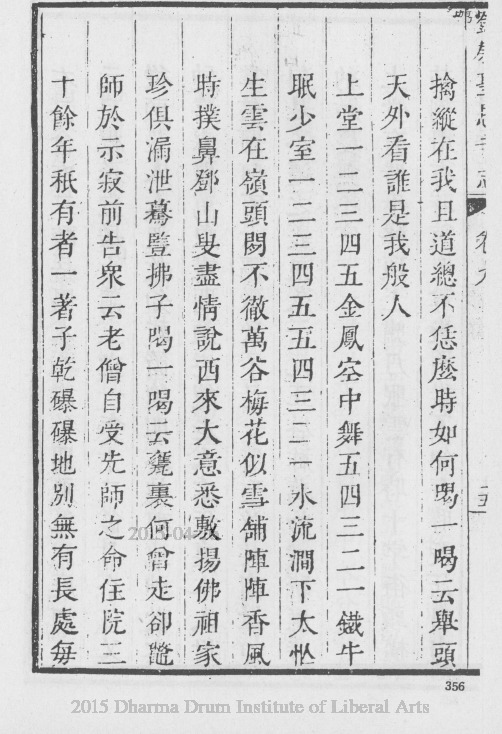 擒縱在我且道總不恁麼時如何喝一喝云舉頭
天外看誰是我般人
上堂一二三四五金鳳空中舞五四三二一鐵牛
眠少室一二三四五五四三二一水流澗下太忙
生雲在嶺頭閑不徹萬谷梅花似雪舖陣陣香風
時撲鼻鄧山叟盡情說西來大意悉敷揚佛祖家
珍俱漏泄驀豎拂子喝一喝云甕裏何曾走卻鼈
師於示寂前告眾云老僧自受先師之命住院三
十餘年秖有者一著子乾曝曝地別無有長處每
356
2015 Dharma Drum Institute of Liberal Arts